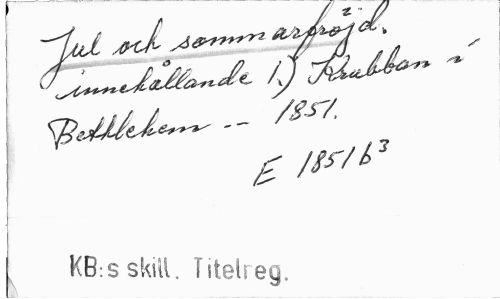 Jul och sommarfröjd.
innehållande 1.) Krubban i
Bethlehem -- 1851.
E 1851 b³
KB:s skill. Titelreg.